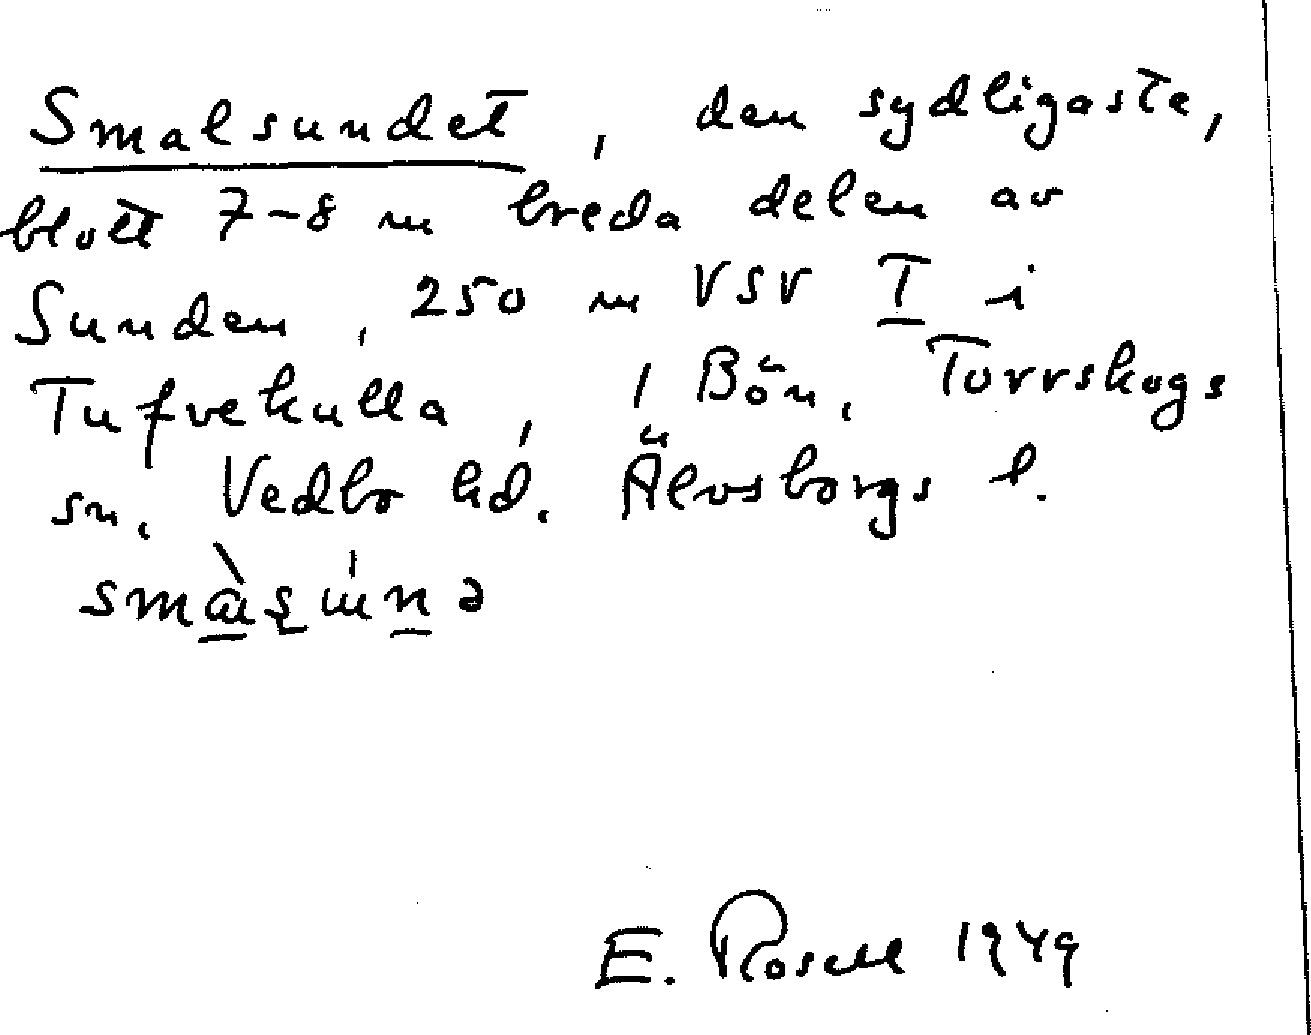 Smalsundet, den sydligaste,
blott 7-8 m breda delen av
Sunden, 250 m VSV T i
Tufvekulla, 1 Bön, Torrskogs
sn, Vedbo hd. Älvsborgs l.
E. Rosell 1949